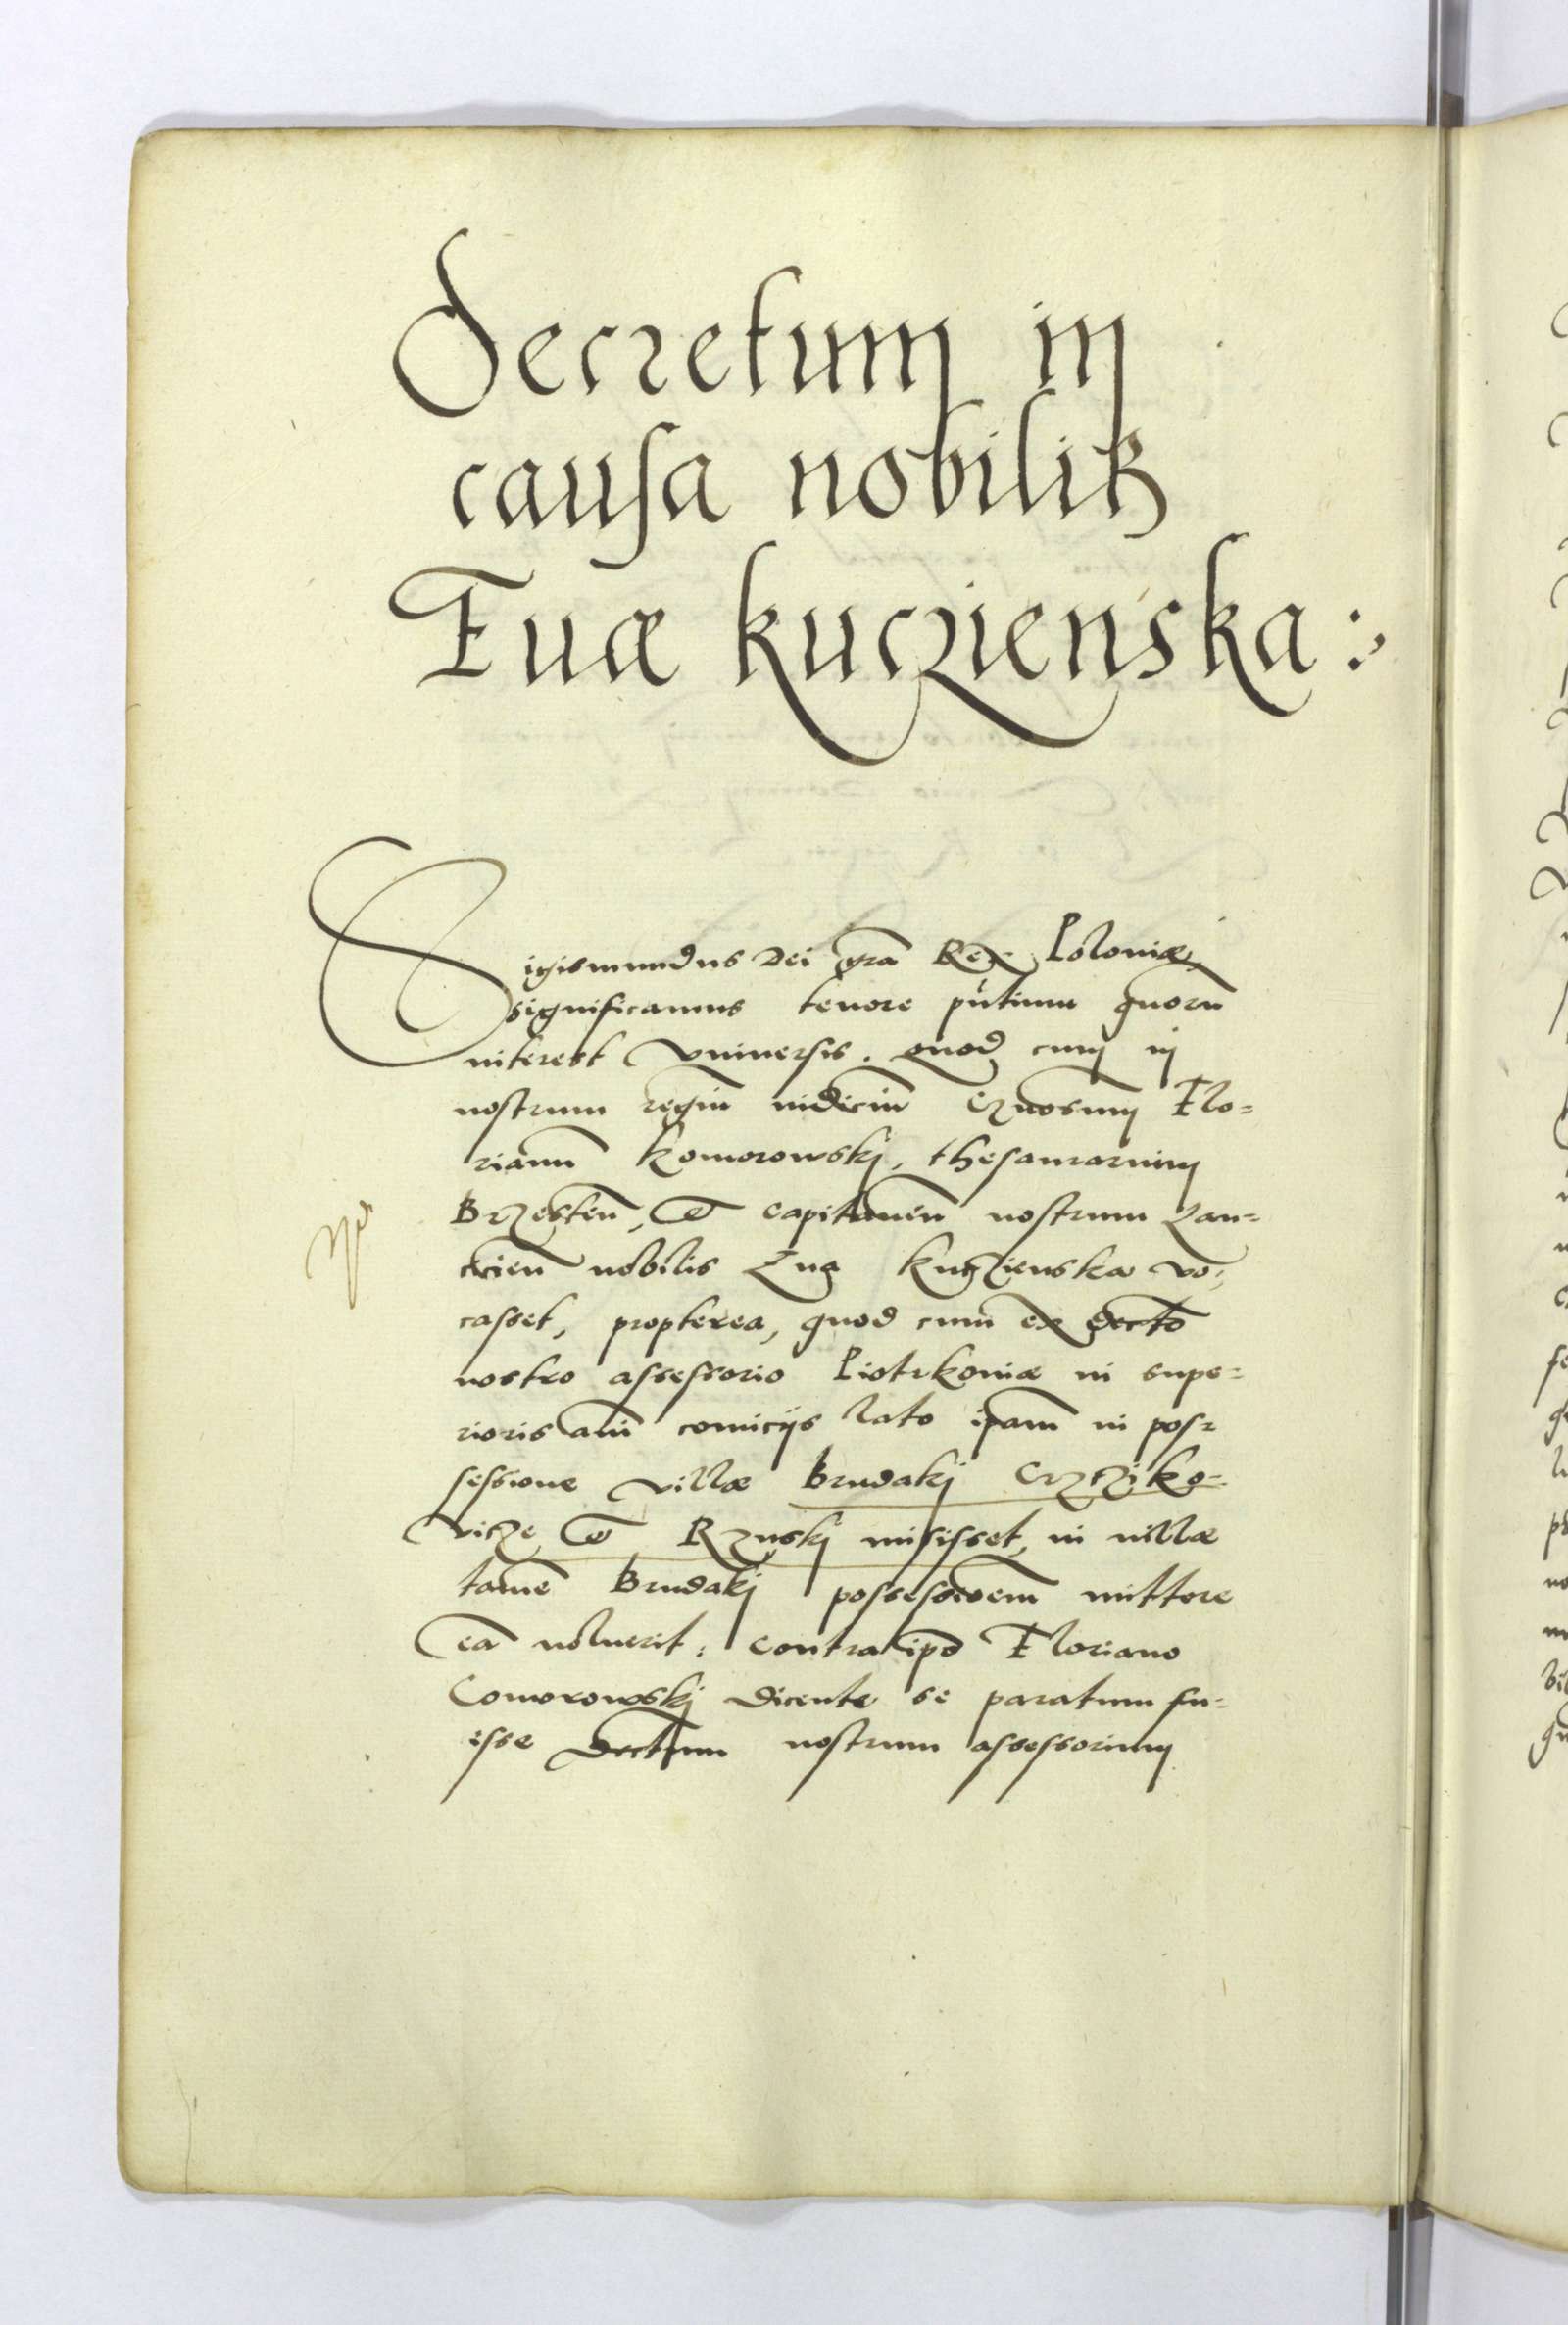 Decretum in
causa nobilis
Euæ kuczienska:
Sigismundus Dei gra Rex Poloniæ,
significamus tenore pntium quoru
interest vniuersis. quod cum in
nostrum regiu iudiciu Gnosum Flo=
rianu Komorowskj, thesaurarium
Brzesten, et capitaneu nostrum Lan=
cicien nobilis Eua Kuczienska vo=
casset, propterea, quod cum ex decto
nostro assessorio Piotrkoniæ in supe=
rioris anni comicijs lato ipam in pos=
sessione villæ Brudakj
vicze et Rzuskj misisset, in villæ
tame Brudakj possessionem mittere
ea noluerit: contra ipo Floriano
Comorowskj dicente se paratum fu=
isse dectum nostrum assessorium